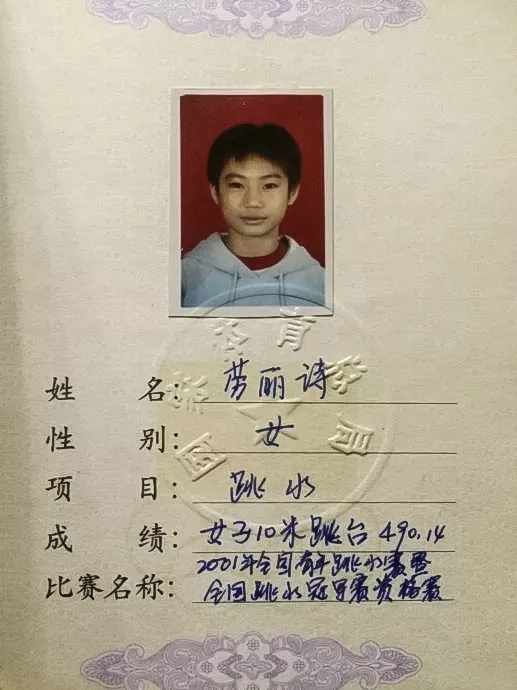 姓 名: 劳丽诗
性 别: 女
项 目: 跳水
成 绩: 女子10米跳台 490.14
2001年全国青年跳水赛暨
比赛名称: 全国跳水冠军赛资格赛
国家体育总局